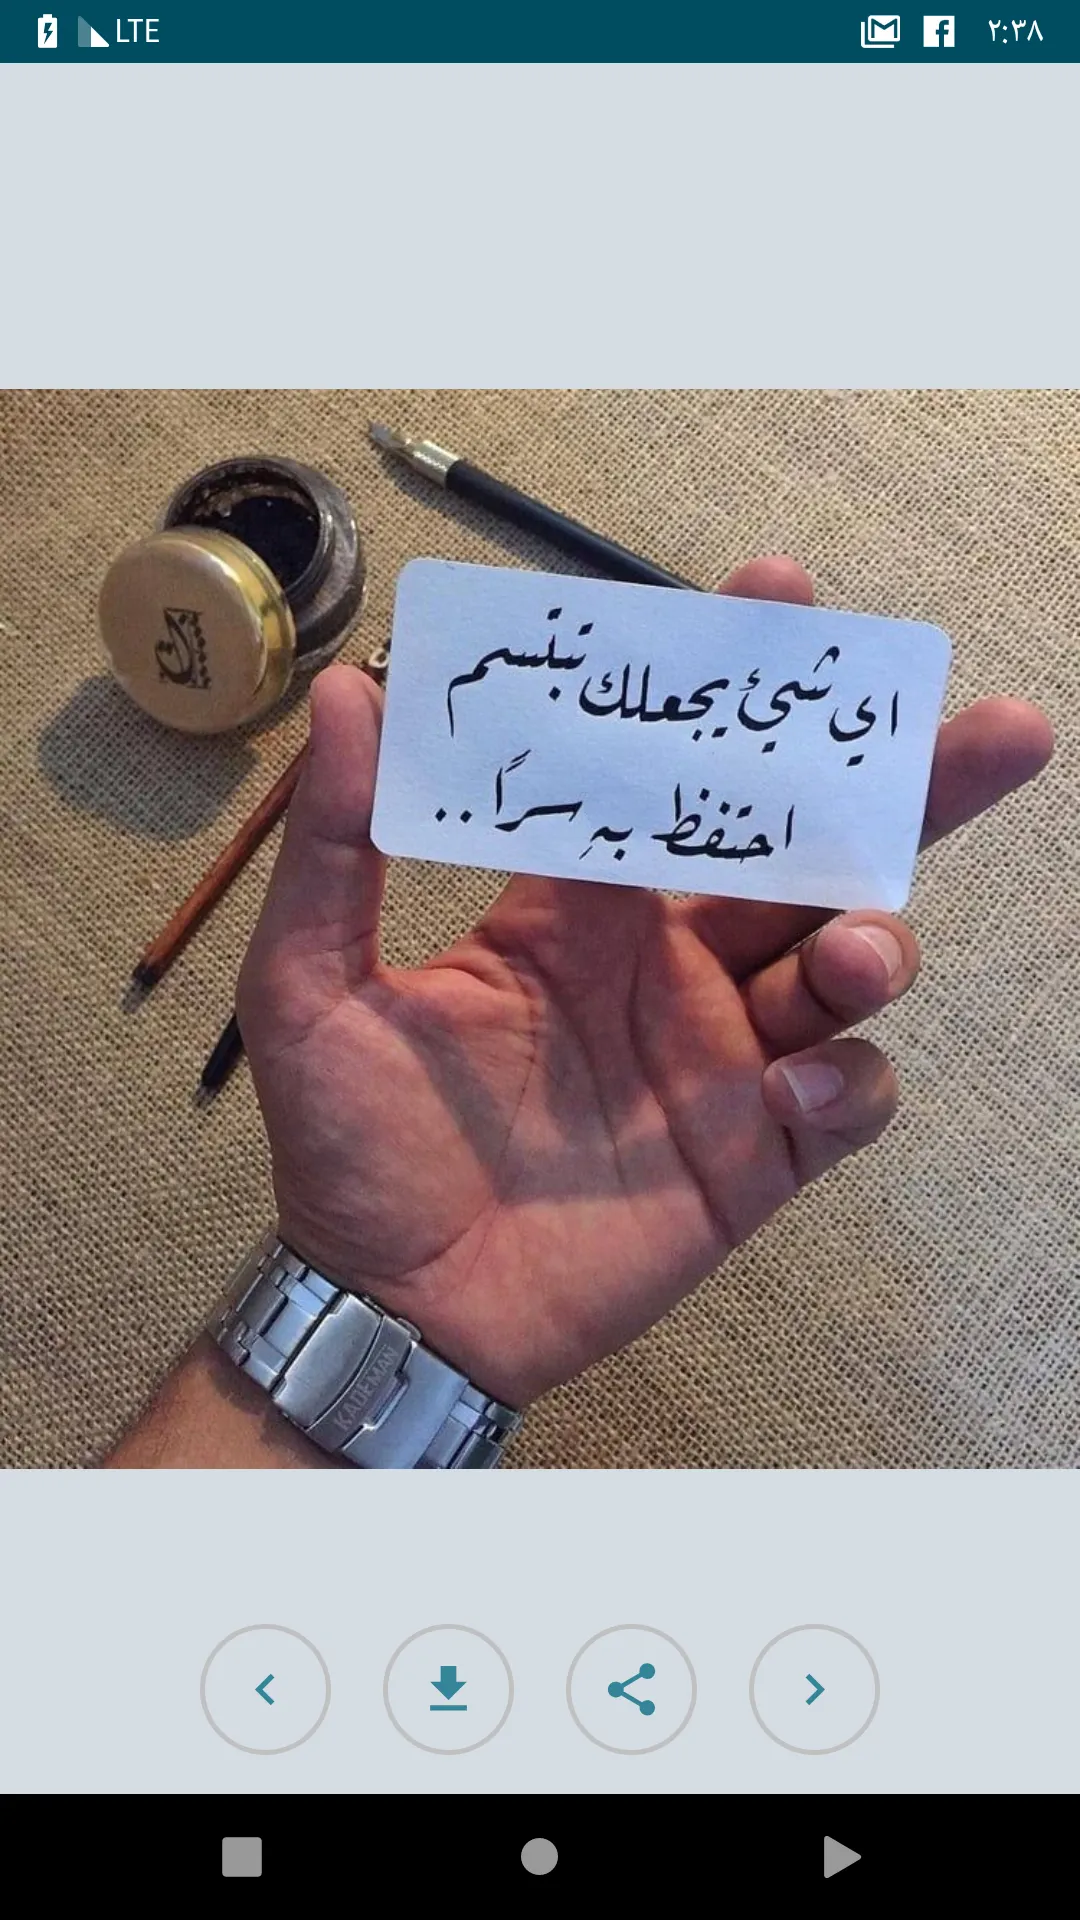 LTE ٢:٣٨
اي شيئ يجعلك تبتسم
احتفظ بهِ سراً..
KADEMAN